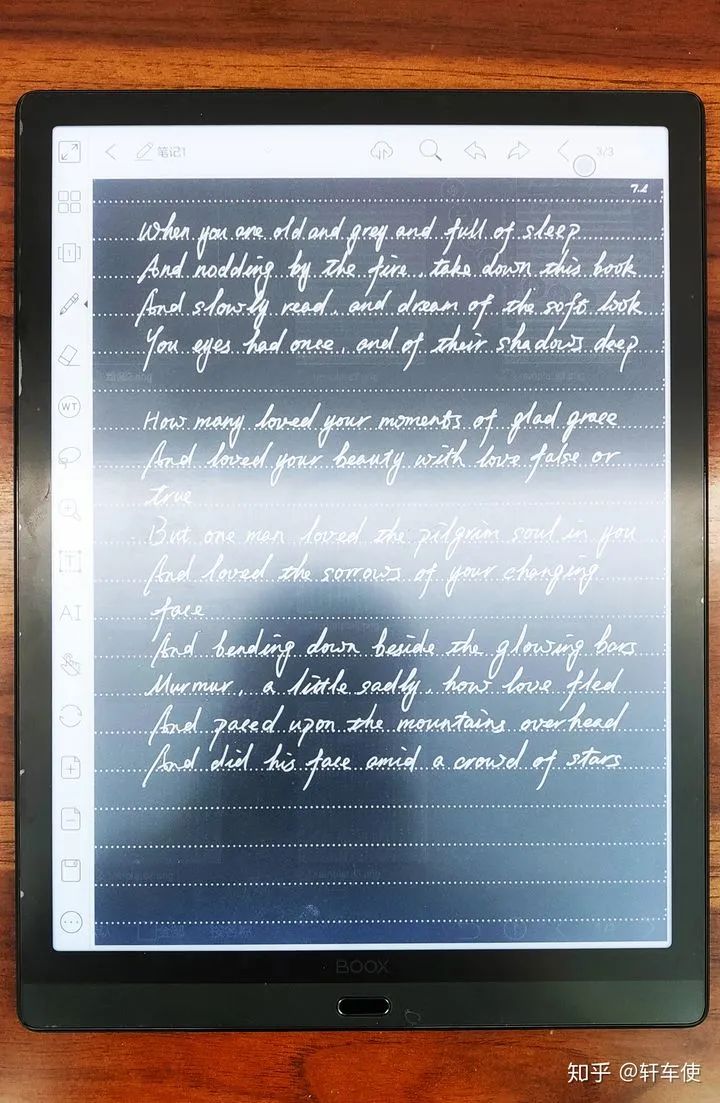 笔记1
3/3
7.2
When you are old and grey and full of sleep
And nodding by the fire, take down this book
And slowly read, and dream of the soft look
You eyes had once, and of their shadows deep
How many loved your moments of glad grace
And loved your beauty with love false or
true
But one man loved the pilgrim soul in you
And loved the sorrows of your changing
face
And bending down beside the glowing bars
Murmur, a little sadly, how love fled
And paced upon the mountains overhead
And did his face amid a crowd of stars
WT
T
AI
BOOX
知乎 @轩车使